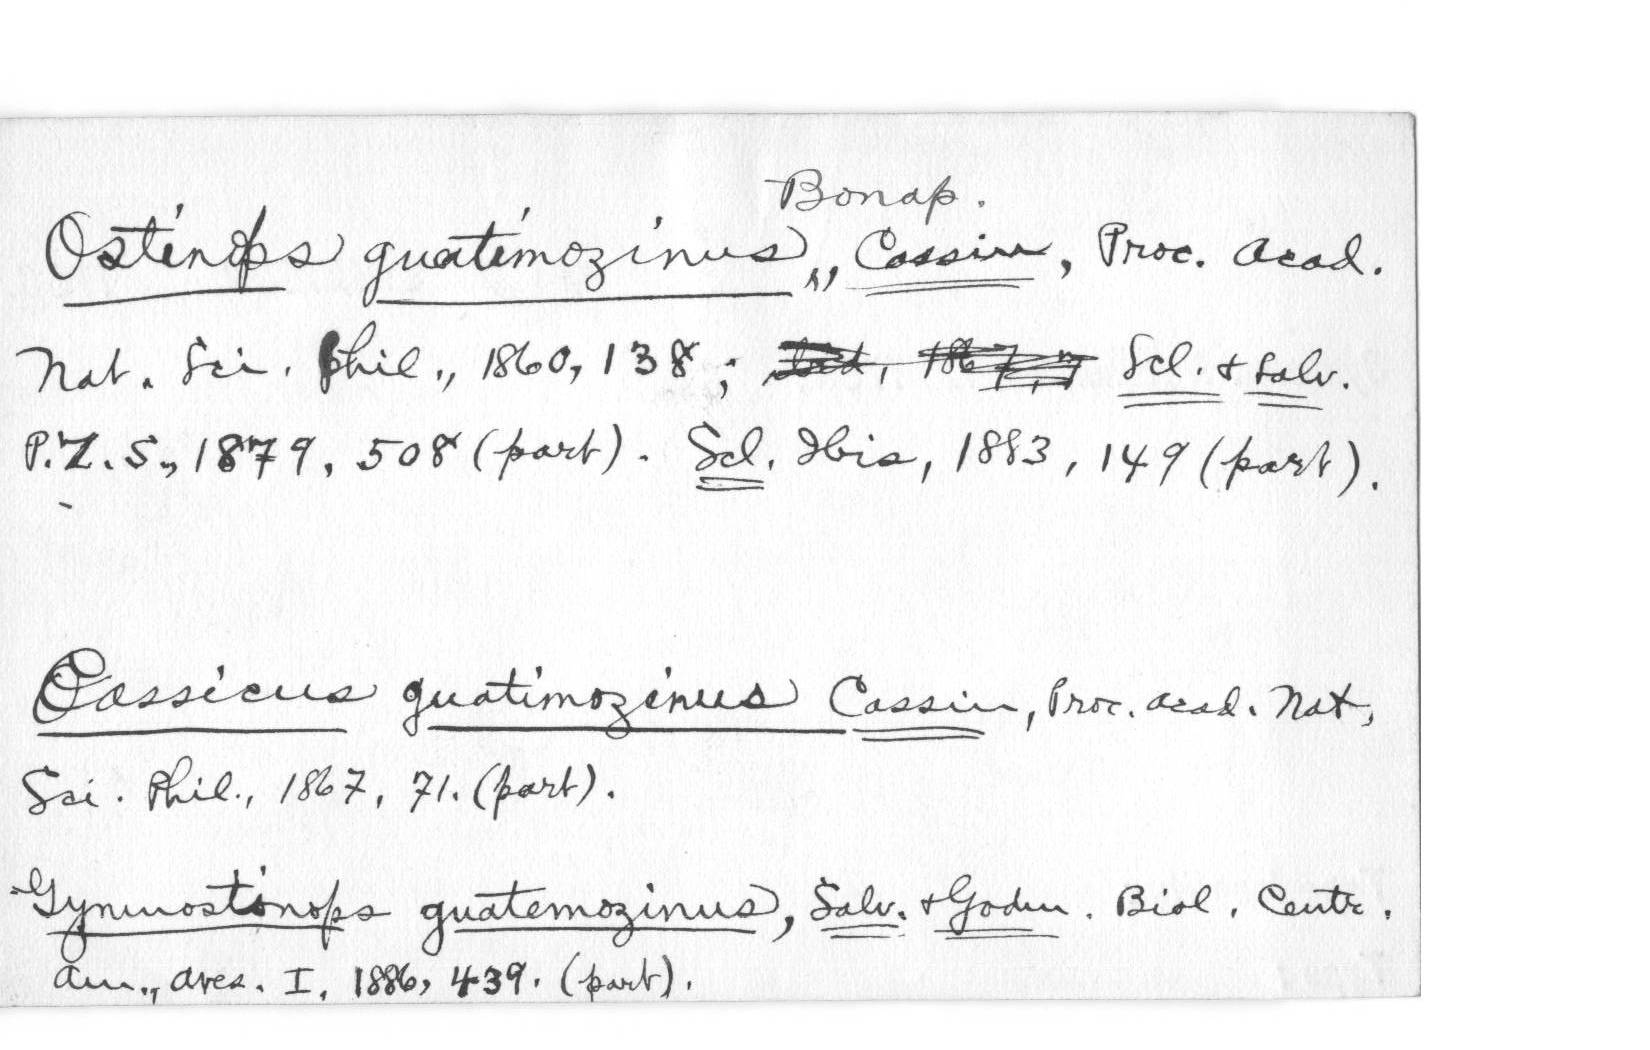 Bonap.
Ostinops guatimozinus,, Cassin, Proc. Acad.
Nat. Sci. Phil., 1860, 138; Scl. & Salv.
P.Z.S., 1879, 508 (part). Scl. Ibis, 1883, 149 (part).
Cassicus guatimozinus Cassin, Proc. Acad. Nat,
Sci. Phil., 1867, 71. (part).
Gymnostinops guatemozinus, Salv. & Godm. Biol. Centr.
Am., Aves. I, 1886, 439. (part).